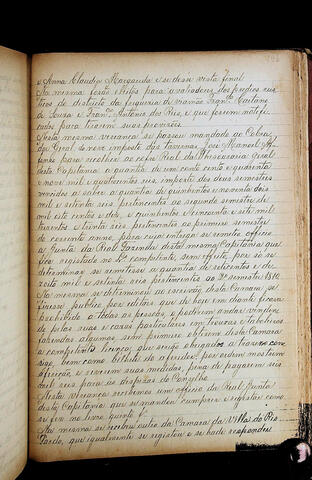 e Anna Claudia Margarida e se deve vista final
Na mesma forão eleitos para avaliadores dos predios rus
ticos do districto da freguezia de viamão Franco Caetano
de Souza e Franco Antonio dos Reis, e que fossem notifi
cados para tirarem suas provizões
Nesta mesma vereança se passou mandado ao Cobra
dor Geral do novo imposto das tavernas José Manoel Af
fonso para recolher ao cofre Real da Thesouraria Geral
desta Capitania a quantia de um conto cento e quarenta
e nove mil e quatrocentos reis, importe dos dous semestres
vencidos a saber a quantia de quinhentos e noventa e dois
mil e setenta reis pertencentes ao segundo semestre de
mil oito centos e dez, e quinhentos e cincoenta e sete mil
trezentos e trinta reis pertencentes ao primeiro semestre
do corrente anno, para cujo se remeteo officio
a Junta da Real Fazenda desta mesma Capitania que
fica registado no Lo competente, sem effeito, por só se
determinar se remitesse a quantia de
mil e setenta reis pertencentes ao 2o semestre 1810
Na mesma se determinou ao escrivão desta Camara se
fizesse publico por editaes que de hoje em diante ficava
prohibido a todas as pessoas, o poderem andar vendendo
pelas ruas e cazas particulares em
fazendas algumas sem primeiro obterem desta Camara
a competente licença, que serão obrigados a trazer con
sigo, bem como bilhete do afferidor, por onde mostrem
afferição, e viverem suas medidas, pena de pagarem seis
mil reis para as despezas do Conselho
Nesta vereança recebemos um officio da Real Junta
desta Capitania que se mandou cumprir e registar como
se fez no livro quinto f
Na mesma se recebeu outro da Camara da Va do Rio
Pardo, que igualmente se registou e se hade responder